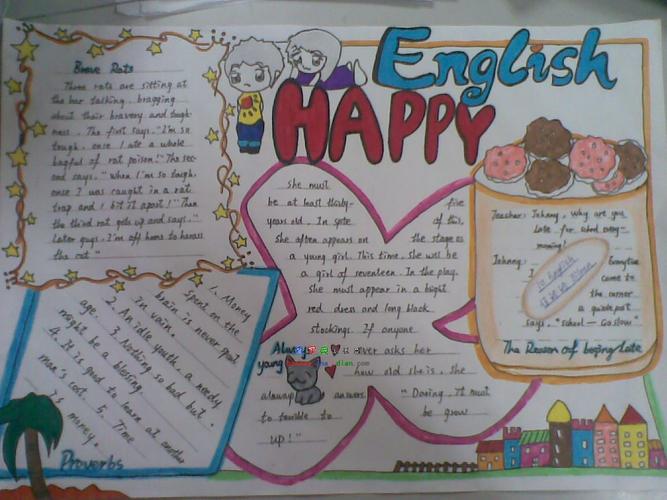 English
HAPPY
Brave Rats
Three rats are sitting at
the bar talking, bragging
about their bravery and tough-
ness. The first says, "I'm so
tough, once I ate a whole
bagful of rat poison!" The sec-
ond says, "when I'm so tough,
once I was caught in a rat
trap and I bit it apart!" Then
the third rat gets up and says, "
Later guys, I'm off home to harass
the cat"
1. Money
spent on the
brain is never spent
in vain.
2. An idle youth, a needy
age. 3. Nothing so bad but
might be a blessing.
4. It is good to learn at another
man's cost. 5. Time
is money.
Proverbs
she must
be at least thirty-five
years old. In spite of this,
she often appears on the stage as
a young girl. This time, she will be
a girl of seventeen. In the play,
she must appear in a bright
red dress and long black
stockings. If anyone
ever asks her
how old she is, she
always answers "Daring, It must
be terrible to be grow
up!"
Always
young
dian.com
Teacher: Johnny, why are you
late for school every
morning?
Johnny: Everytime
I come to
the corner
a guidepost
says, "school — Go slow"
The Reason of being late